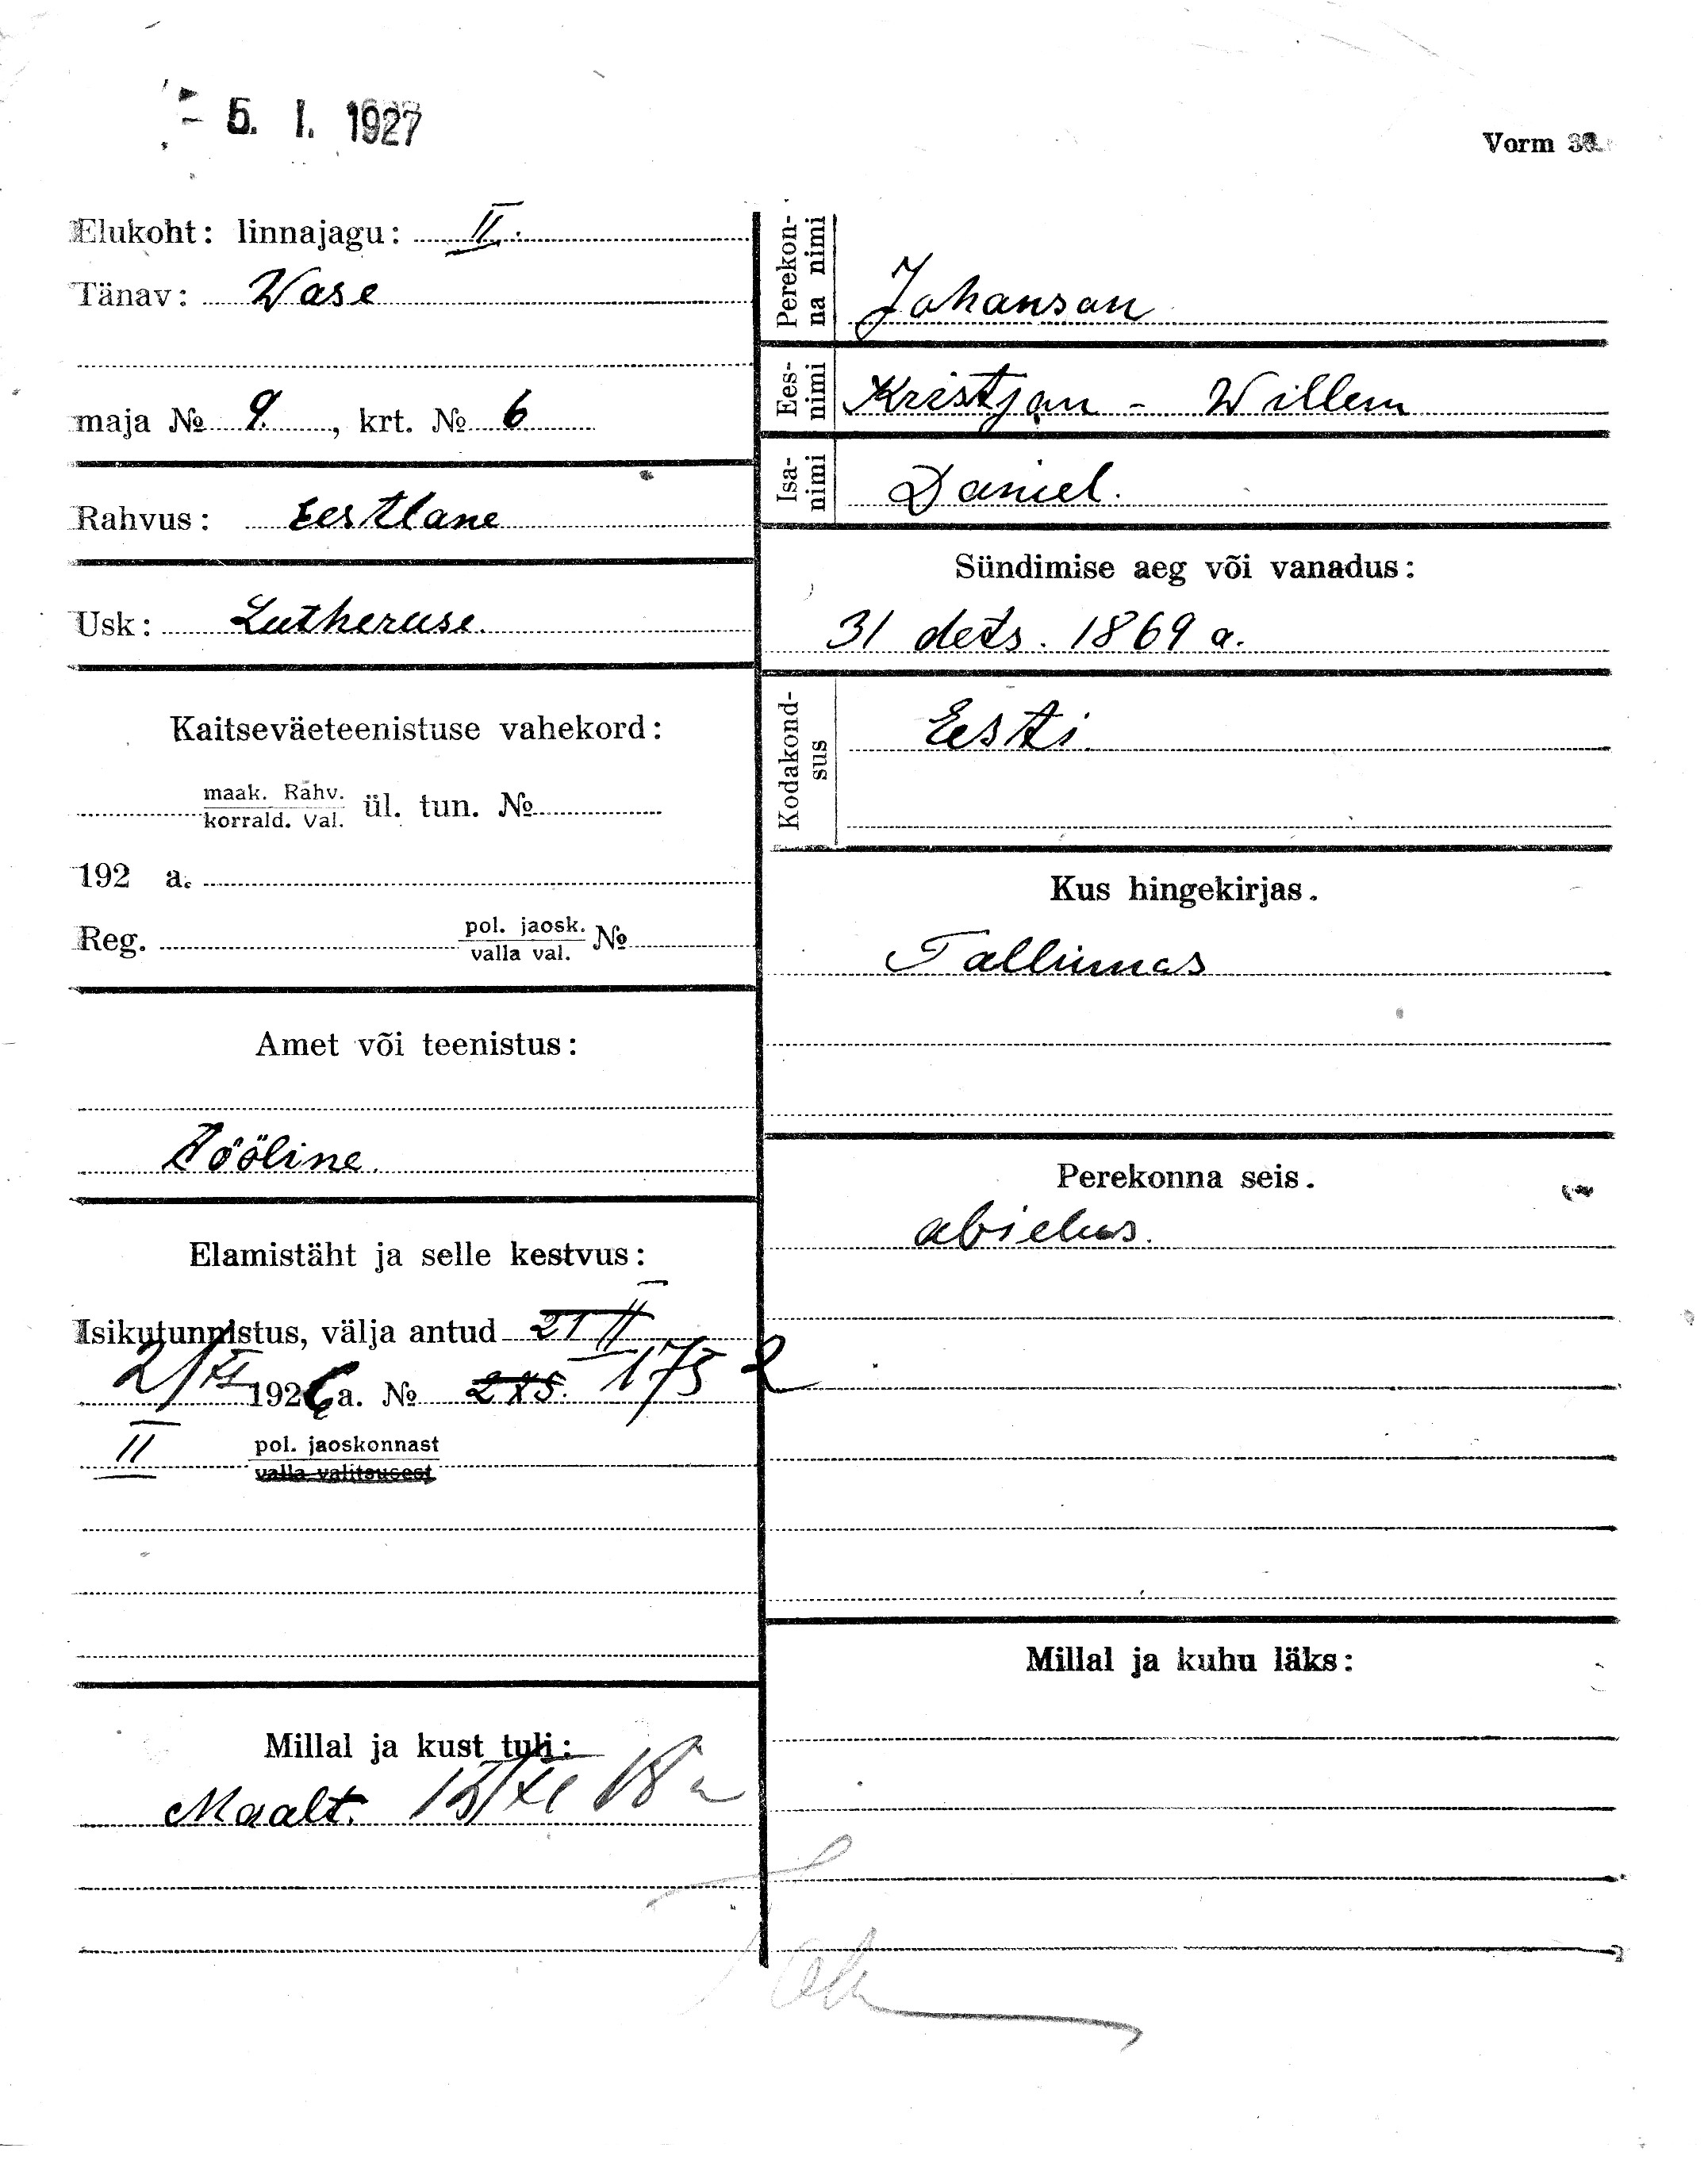 - 5. I. 1927
Vorm
Elukoht: linnajagu: II.
Tänav: Wase
maja № 9., krt. № 6
Rahvus: Eestlane
Usk: Lutheruse.
Kaitseväeteenistuse vahekord:
maak. Rahv.
korrald. Val. ül. tun. №
192 a.
Reg. pol. jaosk.
valla val. №
Amet või teenistus:
Tööline.
Elamistäht ja selle kestvus:
Isikutunnistus, välja antud 21 II
2/XI 1926 a. № 285. 1752
II pol. jaoskonnast
valla valitsusest
Millal ja kust tuli:
Maalt.
Perekon-
na nimi
Johanson
Ees-
nimi
Kristjan - Willem
Isa-
nimi
Daniel.
Sündimise aeg või vanadus:
31 dets. 1869 a.
Kodakond-
sus
Eesti.
Kus hingekirjas.
Tallinnas
Perekonna seis.
abielus.
Millal ja kuhu läks: